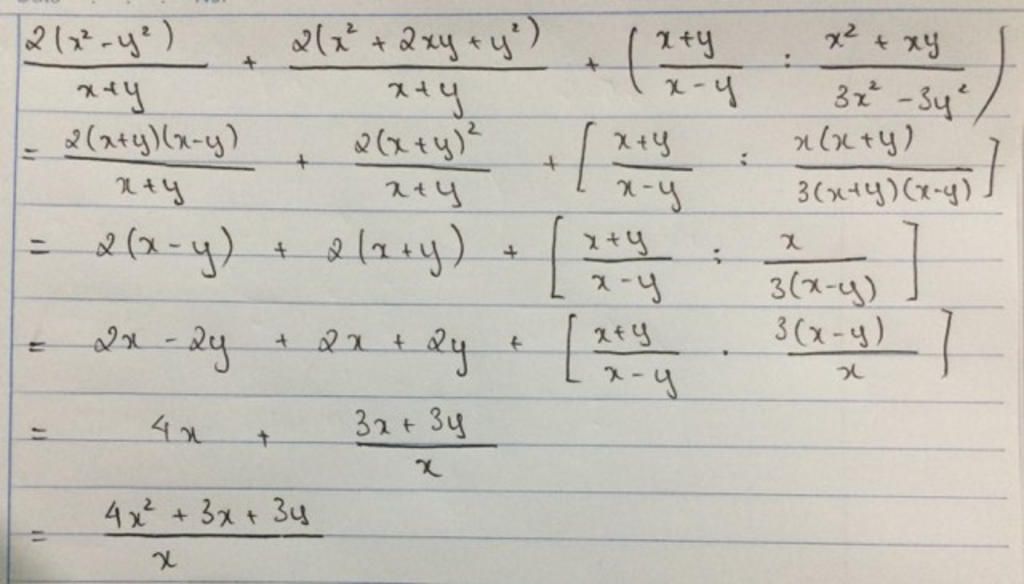 \frac{2(x^2 - y^2)}{x+y} + \frac{2(x^2 + 2xy + y^2)}{x+y} + \left( \frac{x+y}{x-y} : \frac{x^2 + xy}{3x^2 - 3y^2} \right)
= \frac{2(x+y)(x-y)}{x+y} + \frac{2(x+y)^2}{x+y} + \left[ \frac{x+y}{x-y} : \frac{x(x+y)}{3(x+y)(x-y)} \right]
= 2(x-y) + 2(x+y) + \left[ \frac{x+y}{x-y} : \frac{x}{3(x-y)} \right]
= 2x - 2y + 2x + 2y + \left[ \frac{x+y}{x-y} \cdot \frac{3(x-y)}{x} \right]
= 4x + \frac{3x + 3y}{x}
= \frac{4x^2 + 3x + 3y}{x}